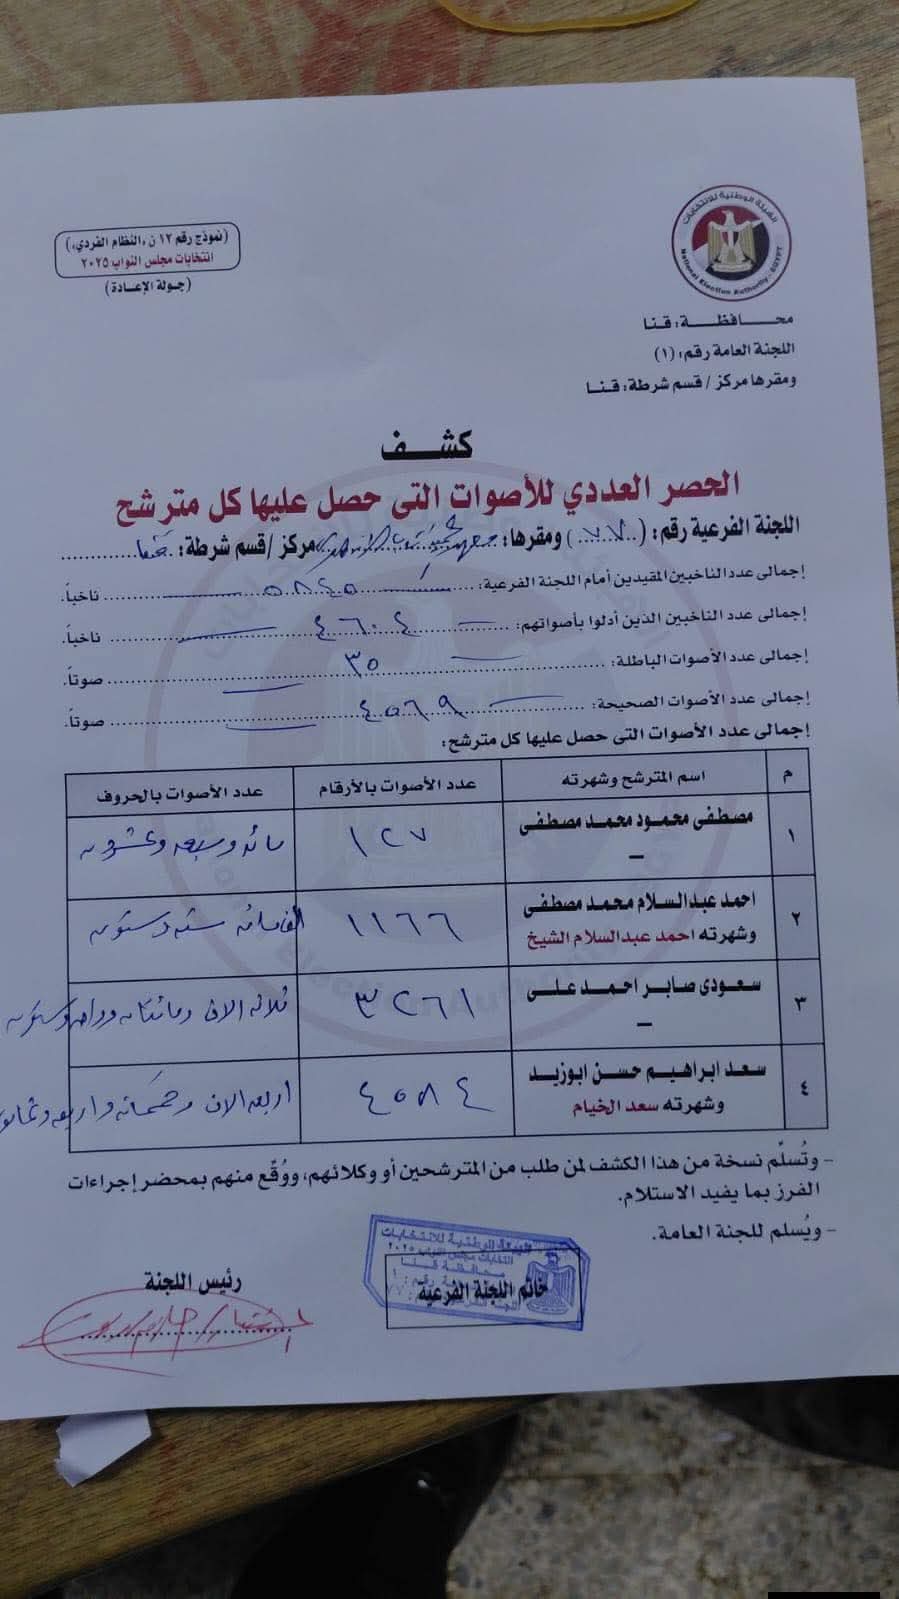 الهيئة الوطنية للانتخابات
National Election Authority - EGYPT
(نموذج رقم ١٢ ن، النظام الفردي،)
انتخابات مجلس النواب ٢٠٢٥
(جولة الإعادة)
محافظة: قنا
اللجنة العامة رقم: (١)
ومقرها مركز / قسم شرطة: قنا
كشف
الحصر العددي للأصوات التى حصل عليها كل مترشح
اللجنة الفرعية رقم: (٧٧) ومقرها: مركز /قسم شرطة: قنا
إجمالى عدد الناخبين المقيدين أمام اللجنة الفرعية: ٥٨٤٥ ناخباً.
إجمالى عدد الناخبين الذين أدلوا بأصواتهم: ٤٦٠٤ ناخباً.
إجمالى عدد الأصوات الباطلة: ٣٥ صوتاً.
إجمالى عدد الأصوات الصحيحة: ٤٥٦٩ صوتاً.
إجمالى عدد الأصوات التى حصل عليها كل مترشح:
م اسم المترشح وشهرته عدد الأصوات بالأرقام عدد الأصوات بالحروف
١ مصطفى محمود محمد مصطفى ١٢٧ مائه وسبعه وعشرون
–
٢ احمد عبدالسلام محمد مصطفى ١١٦٦ الف مائه سته وستون
وشهرته احمد عبدالسلام الشيخ
٣ سعودى صابر احمد على ٣٢٦١ ثلاثه الاف ومائتان وواحد وستون
–
٤ سعد ابراهيم حسن ابوزيد ٤٥٨٤ اربعه الاف وخمسمائه واربعه وثمانون
وشهرته سعد الخيام
– وتُسلَّم نسخة من هذا الكشف لمن طلب من المترشحين أو وكلائهم، ووُقِّع منهم بمحضر إجراءات
الفرز بما يفيد الاستلام.
– ويُسلم للجنة العامة.
خاتم اللجنة الفرعية
رئيس اللجنة